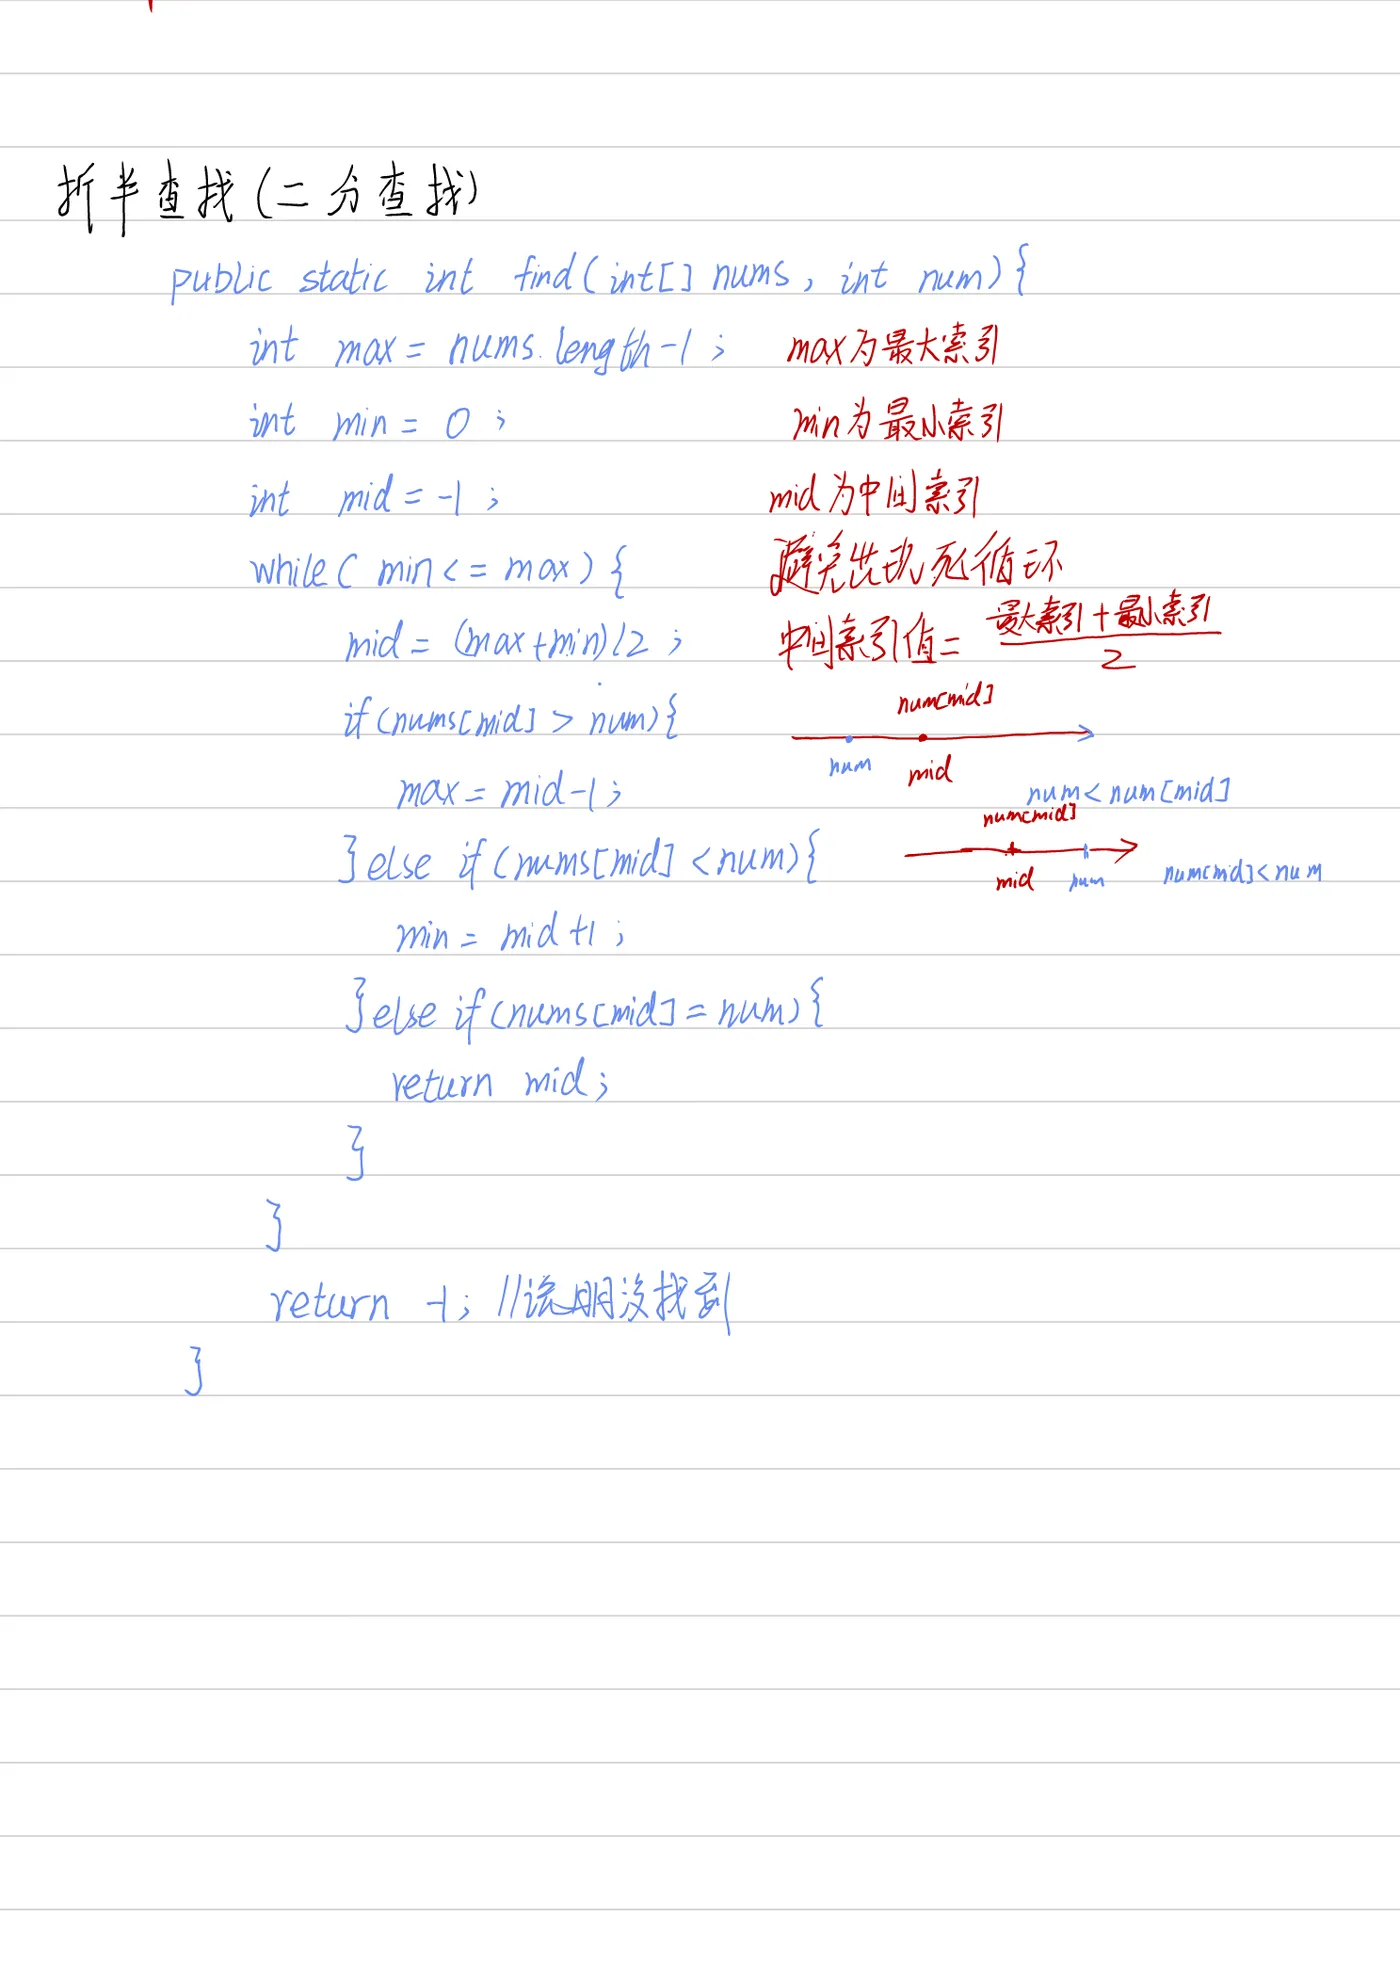 折半查找(二分查找)
public static int find(int[] nums, int num){
int max = nums.length-1; max为最大索引
int min = 0; min为最小索引
int mid = -1; mid为中间索引
while( min <= max ) { 避免出现死循环
mid = (max+min)/2; 中间索引值= 最大索引+最小索引
2
num[mid]
if(nums[mid] > num){
num mid
max = mid-1; num < num[mid]
num[mid]
}else if(nums[mid] < num){
mid num num[mid]<num
min = mid+1;
}else if(nums[mid] = num){
return mid;
}
}
return -1; //说明没找到
}